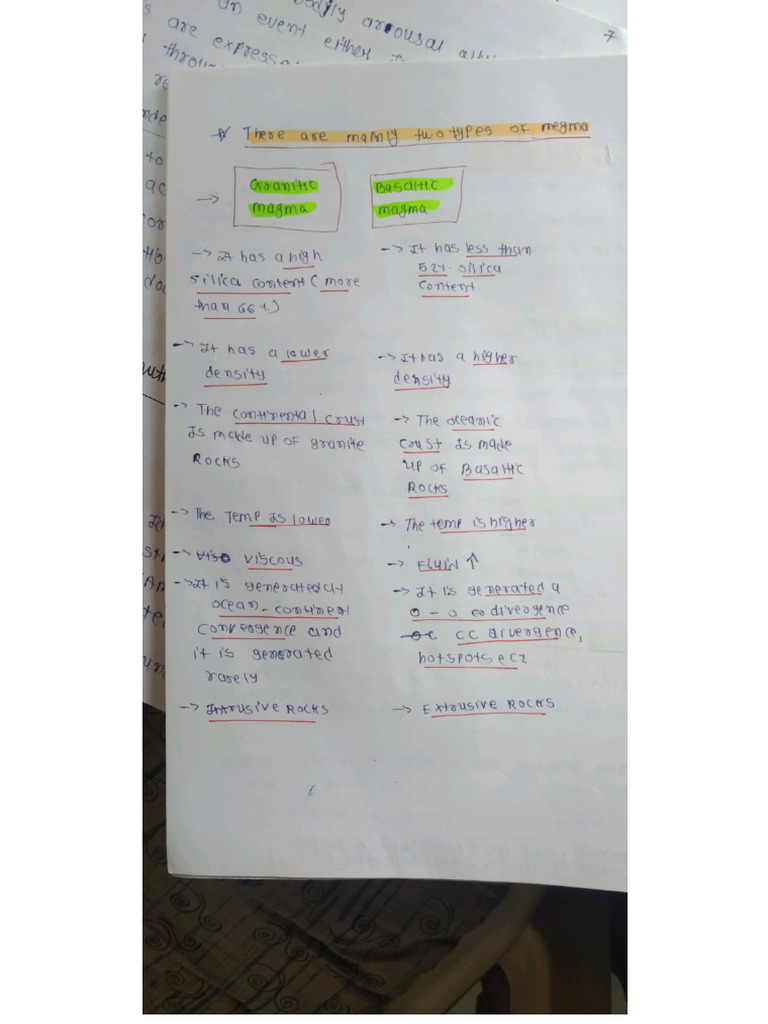 odily arousal
an event either
s are express
throu
7
There are mainly two types of megma
→ Granitic magma
Basaltic magma
→ It has a high
silica content (more
than 66%)
→ It has less than
52% silica
content.
→ It has a lower
density
→ It has a higher
density
→ The continental crust
is made up of granite
Rocks
→ The oceanic
crust is made
up of Basaltic
Rocks
→ The Temp is lower
→ The temp is higher
→ viscous
→ Fluid ↑
→ It is generated at
ocean-continent
convergence and
it is generated
rarely
→ It is generated a
o-o divergence
cc divergence,
hotspots ect
→ Intrusive Rocks
→ Extrusive Rocks